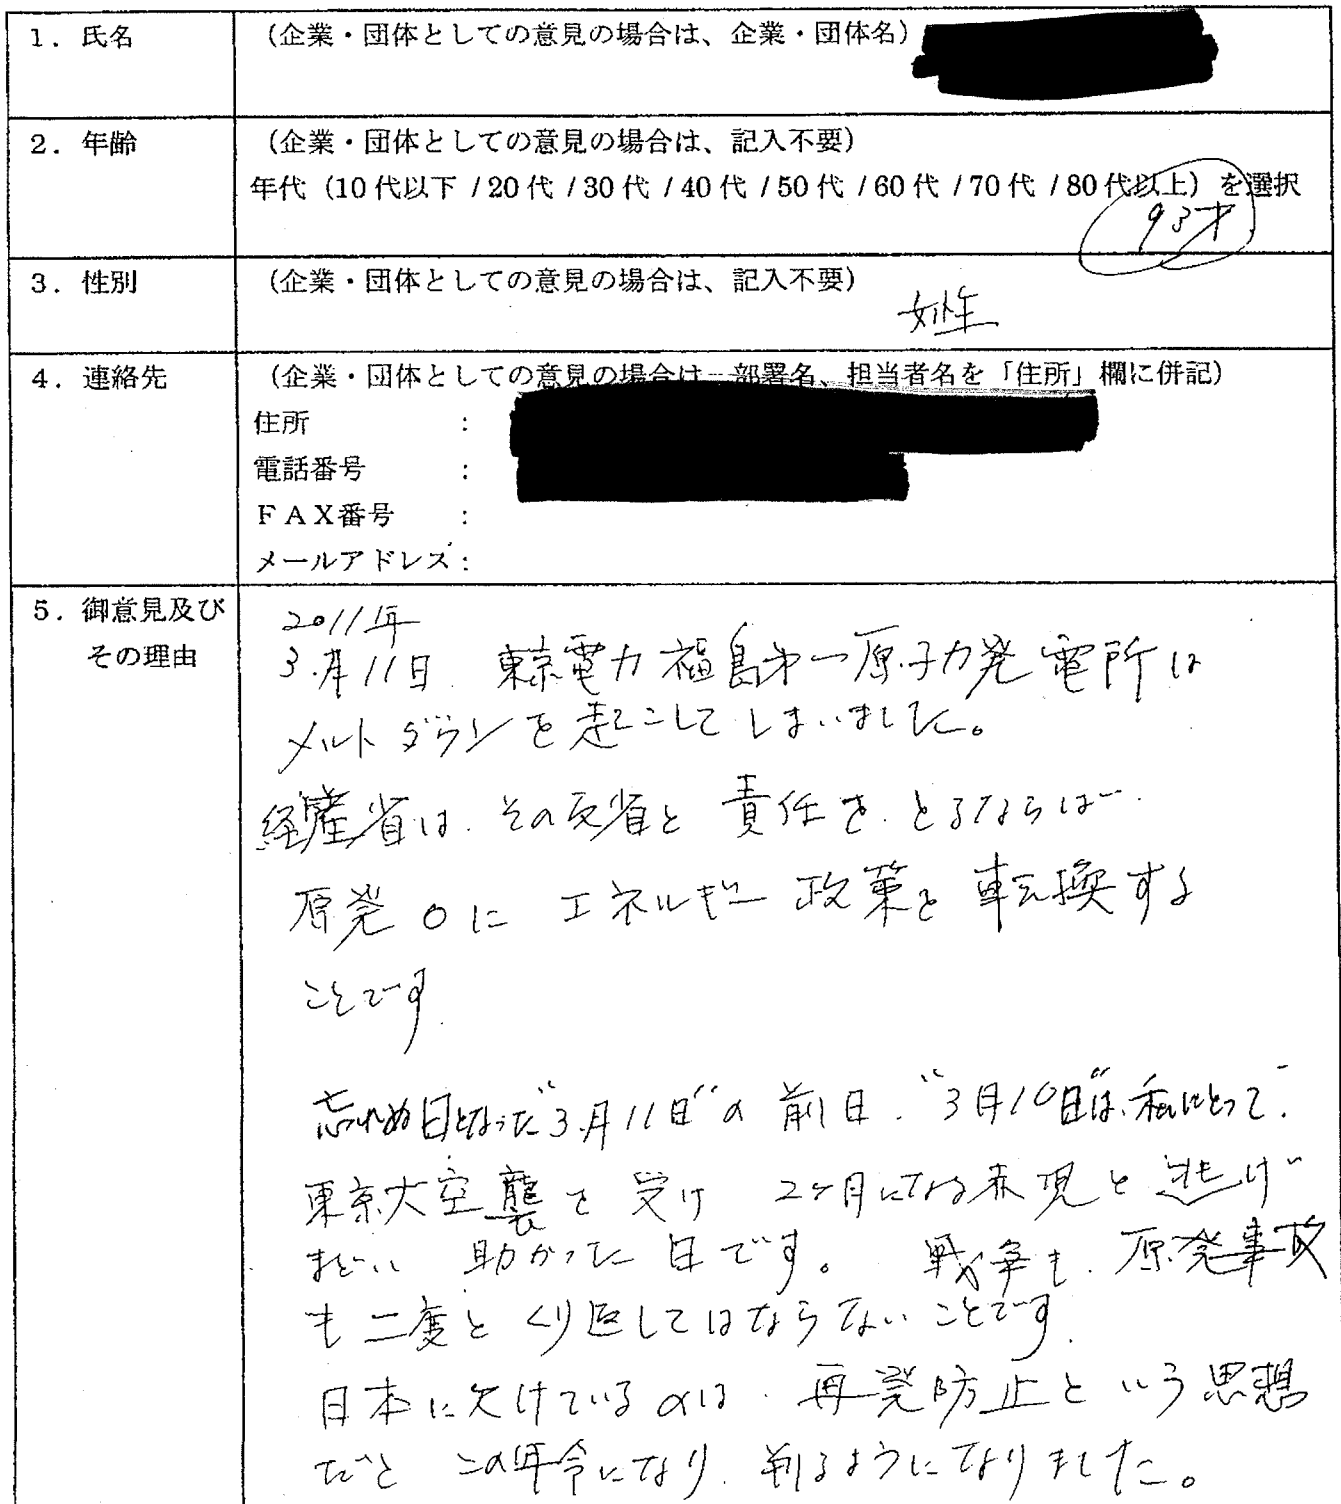 1. 氏名
(企業・団体としての意見の場合は、企業・団体名)
2. 年齢
(企業・団体としての意見の場合は、記入不要)
年代 (10代以下 / 20代 / 30代 / 40代 / 50代 / 60代 / 70代 / 80代以上) を選択
93才
3. 性別
(企業・団体としての意見の場合は、記入不要)
女性
4. 連絡先
(企業・団体としての意見の場合は、部署名、担当者名を「住所」欄に併記)
住所 :
電話番号 :
FAX番号 :
メールアドレス :
5. 御意見及び
その理由
2011年
3月11日 東京電力福島第一原子力発電所は
メルトダウンを起こしてしまいました。
経産省は、その反省と責任をとるならば
原発0にエネルギー政策を転換する
ことです
忘れぬ日となった"3月11日"の前日、"3月10日"は、私にとって、
東京大空襲を受け 2ヶ月になる赤児と逃げ
まどい 助かった日です。 戦争も、原発事故
も二度とくり返してはならないことです
日本に欠けているのは、再発防止という思想
だと この年令になり、判るようになりました。